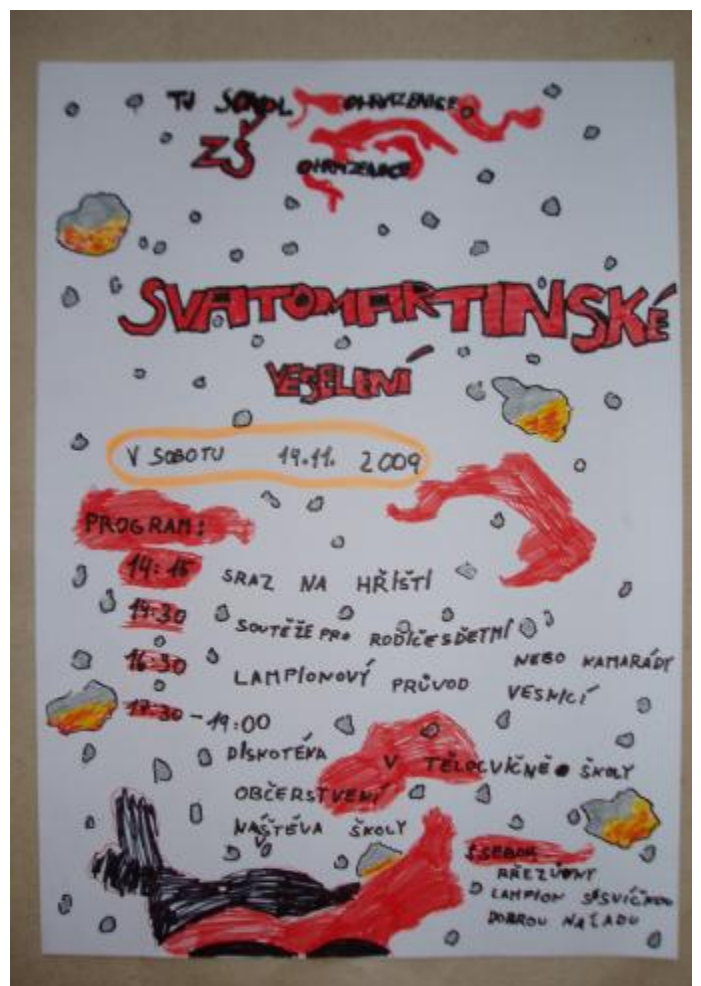 TJ SOKOL OHRAZENICE
ZŠ
OHRAZENICE
SVATOMARTINSKÉ
VESELENÍ
V SOBOTU 14.11. 2009
PROGRAM:
14:15 SRAZ NA HŘIŠTÍ
14:30 SOUTĚŽE PRO RODIČE S DĚTMI
NEBO KAMARÁDY
16:30 LAMPIONOVÝ PRŮVOD VESNICÍ
17:30 - 19:00
DISKOTÉKA V TĚLOCVIČNĚ ŠKOLY
OBČERSTVENÍ
NÁŠTĚVA ŠKOLY
S SEBOU
PŘEZŮVKY
LAMPION S SVÍČKOU
DOBROU NÁLADU